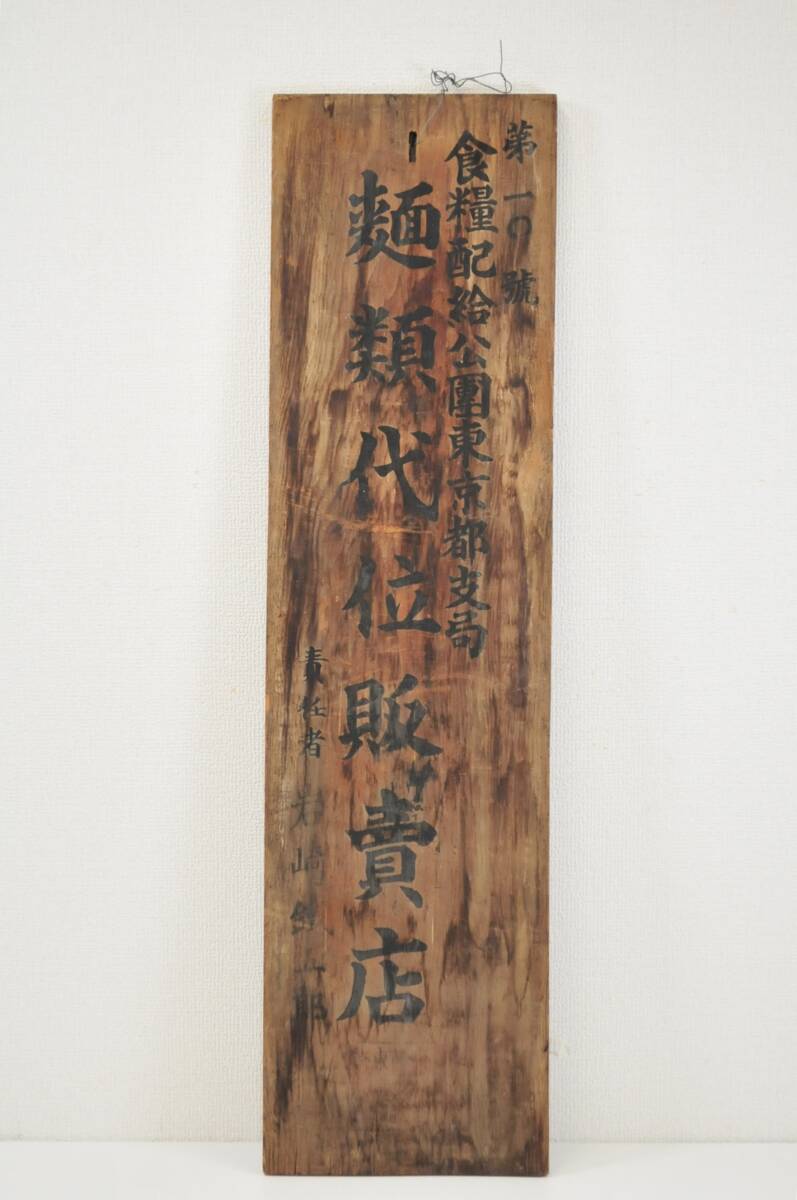 第一〇號
食糧配給公團東京都支局
麵類代位販賣店
責任者 岩崎